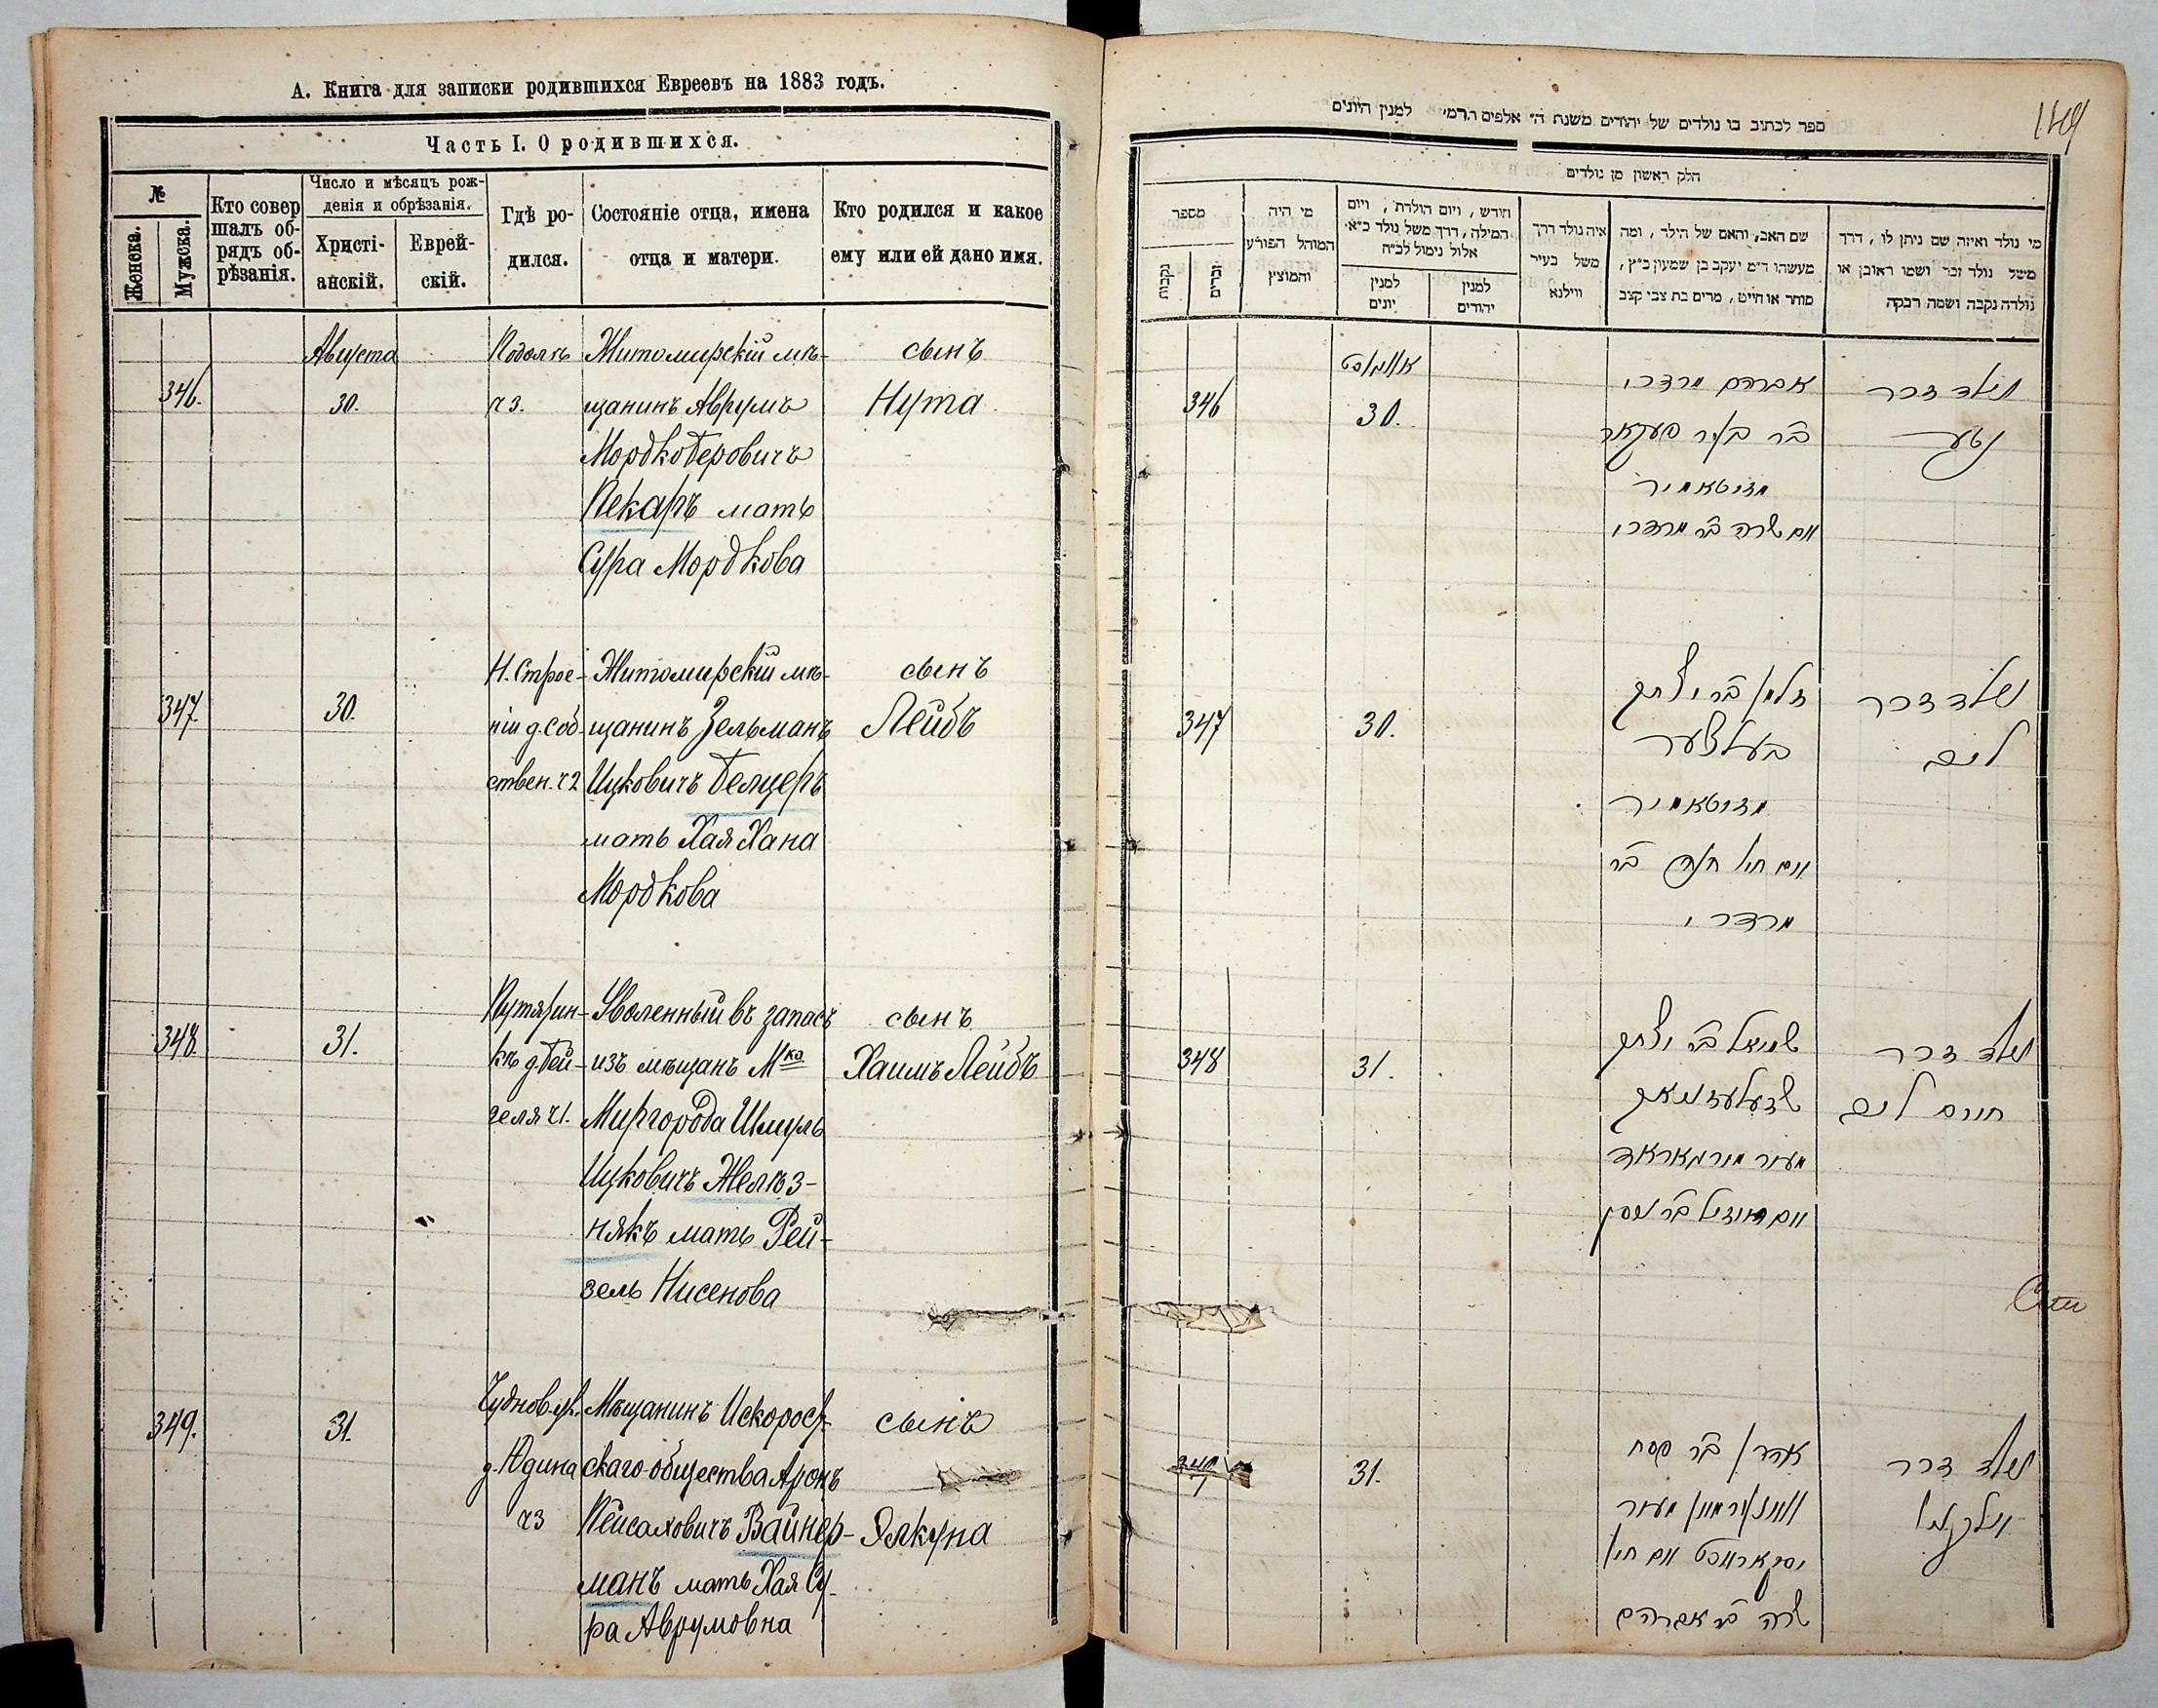 А. Книга для записки родившихся Евреевъ на 1883 годъ.
Часть I. О родившихся.
№
Женска.
Мужска.
Кто совер
шалъ об-
рядъ об-
рѣзанія.
Число и мѣсяцъ рож-
денія и обрѣзанія.
Христі-
анскій.
Еврей-
скій.
Гдѣ ро-
дился.
Состояніе отца, имена
отца и матери.
Кто родился и какое
ему или ей дано имя.
Августа
346.
30.
ч 3.
Житомирскій мѣ-
щанинъ Аврумъ
Мордко Беровичъ
Пекаръ мать
Сура Мордкова
сынъ
Нута
347.
30.
Н. Строе-
нія д. Соб-
ствен. ч 2
Житомирскій мѣ-
щанинъ Зельманъ
Ицковичъ Белцеръ
мать Хая Хана
Мордкова
сынъ
Лейбъ
348.
31.
Путятин-
къ д. Гей-
селя ч 1.
Уволенный въ запасъ
изъ мѣщанъ Мка
Миргорода Шмуль
Ицковичъ Желѣз-
някъ мать Рей-
зель Нисенова
сынъ
Хаимъ Лейбъ
349.
31.
Чуднов. ул.
д. Юдина
ч 3
Мѣщанинъ Искорост-
скаго общества Аронъ
Пейсаховичъ Вайнер-
манъ мать Хая Су-
ра Аврумовна
сынъ
Элкуна
ספר לכתוב בו נולדים של יהודים משנת ה׳ אלפים תרמ׳ למנין היונים
חלק ראשון מן נולדים
מספר
נקבות
זכרים
מי היה
המוהל הפורע
והמוצץ
חודש, ויום הולדת, ויום
המילה, דרך משל נולד כ״א
אלול נימול לכ״ח
למנין
יונים
למנין
יהודים
איה נולד דרך
משל בעיר
ווילנא
שם האב, והאם של הילד, ומה
מעשהו ד״מ יעקב בן שמעון כ״ץ,
סוחר או חייט, מרים בת צבי קצב
מי נולד ואיזה שם ניתן לו, דרך
משל נולד זכר ושמו ראובן או
נולדה נקבה ושמה רבקה
346
אווגוסט
30.
אברהם מרדכי
ב״ר בער פעקאר
מזיטאמיר
ואם שרה ב״ר מרדכי
נולד זכר
נטע
347
30.
זלמן ב״ר יצחק
בעלצער
מזיטאמיר
ואם חיה חנה ב״ר
מרדכי
נולד זכר
ליב
348
31.
שמואל ב״ר יצחק
זשעלעזניאק
מעיר מירגאראד
ואם רייזיל ב״ר ניסן
נולד זכר
חיים ליב
349
31.
אהרן ב״ר פסח
וויינערמאן מעיר
ואם חיה
שרה ב״ר אברהם
נולד זכר